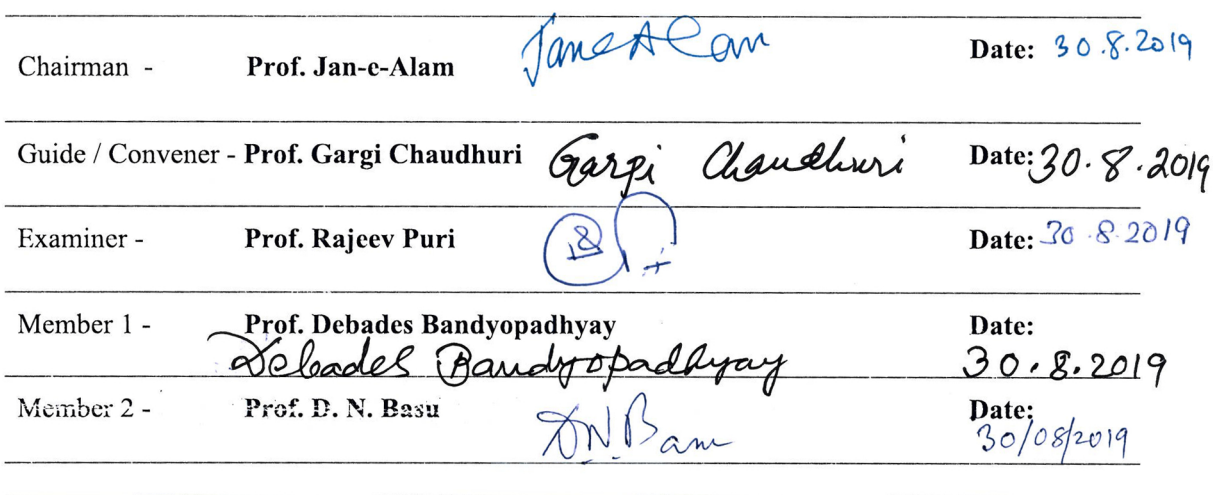 Chairman - Prof. Jan-e-Alam Jane Alam Date: 30.8.2019
Guide / Convener - Prof. Gargi Chaudhuri Gargi Chaudhuri Date: 30.8.2019
Examiner - Prof. Rajeev Puri Date: 30.8.2019
Member 1 - Prof. Debades Bandyopadhyay Date:
Debades Bandyopadhyay 30.8.2019
Member 2 - Prof. D. N. Basu D.N. Basu Date:
30/08/2019